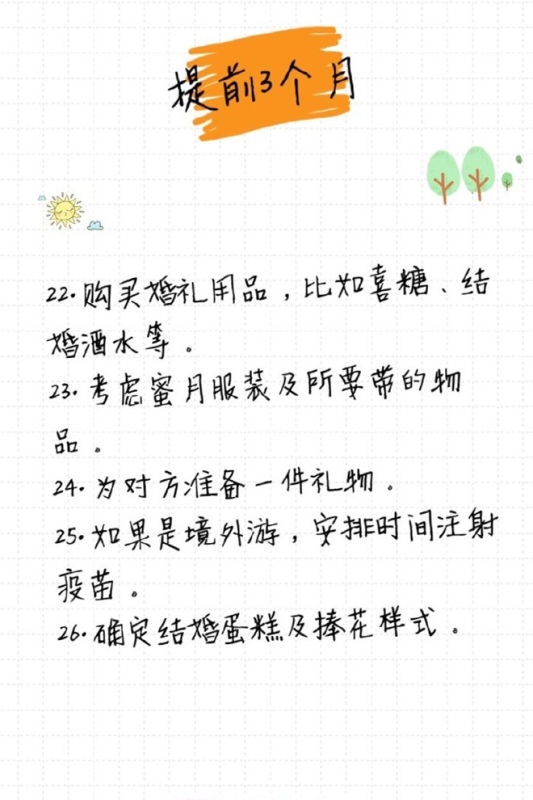 提前3个月
22.购买婚礼用品，比如喜糖、结
婚酒水等。
23.考虑蜜月服装及所要带的物
品。
24.为对方准备一件礼物。
25.如果是境外游，安排时间注射
疫苗。
26.确定结婚蛋糕及捧花样式。